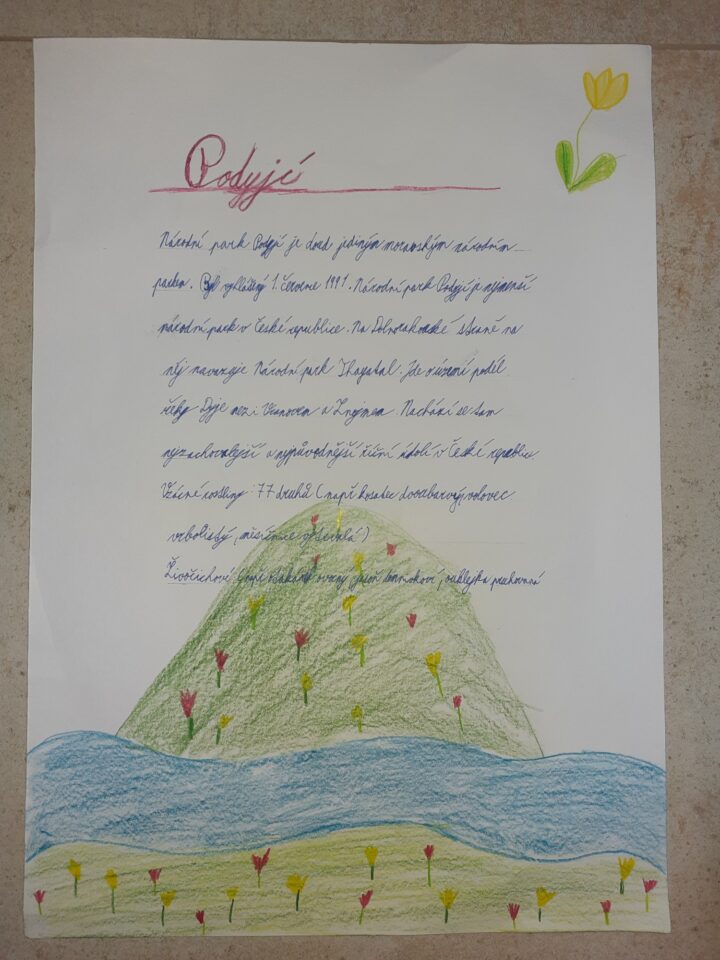 Podyjí
Národní park Podyjí je dosud jediným moravským národním
parkem. Byl vyhlášený 1. července 1991. Národní park Podyjí je nejmenší
národní park v České republice. Na Dolnorakouské straně na
něj navazuje Národní park Thayatal. Jde o území podél
řeky Dyje mezi Vranovem a Znojmem. Nachází se tam
nejzachovalejší a nejpůvodnější říční údolí v České republice.
Vzácné rostliny: 77 druhů (např. kosatec dvoubarvý, volovec
vrbolistý, měsíčnice vytrvalá)
Živočichové (např. jasoň dymnivkový, ouklejka pruhovaná